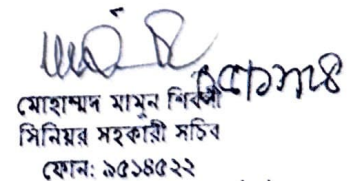 মোহাম্মদ মামুন শিবলী
সিনিয়র সহকারী সচিব
ফোন: ৯৫১৪৫২২